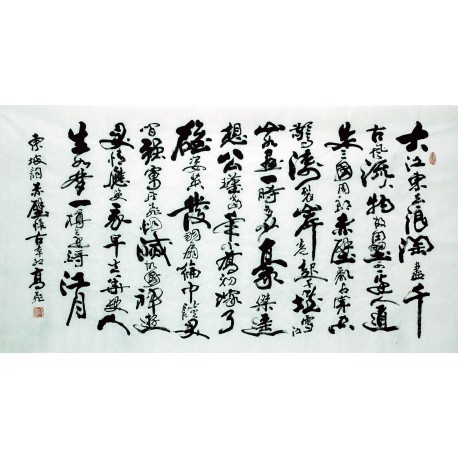 大江東去浪淘盡千
古風流人物故壘西邊人道
是三國周郎赤壁亂石穿空
驚濤裂岸卷起千堆雪江
山如畫一時多少豪傑遙
想公瑾當年小喬初嫁了
雄姿英發羽扇綸巾談笑
間強虜灰飛煙滅故國神遊
多情應笑我早生華髮人
生如夢一樽還酹江月
東坡詞赤壁懷古